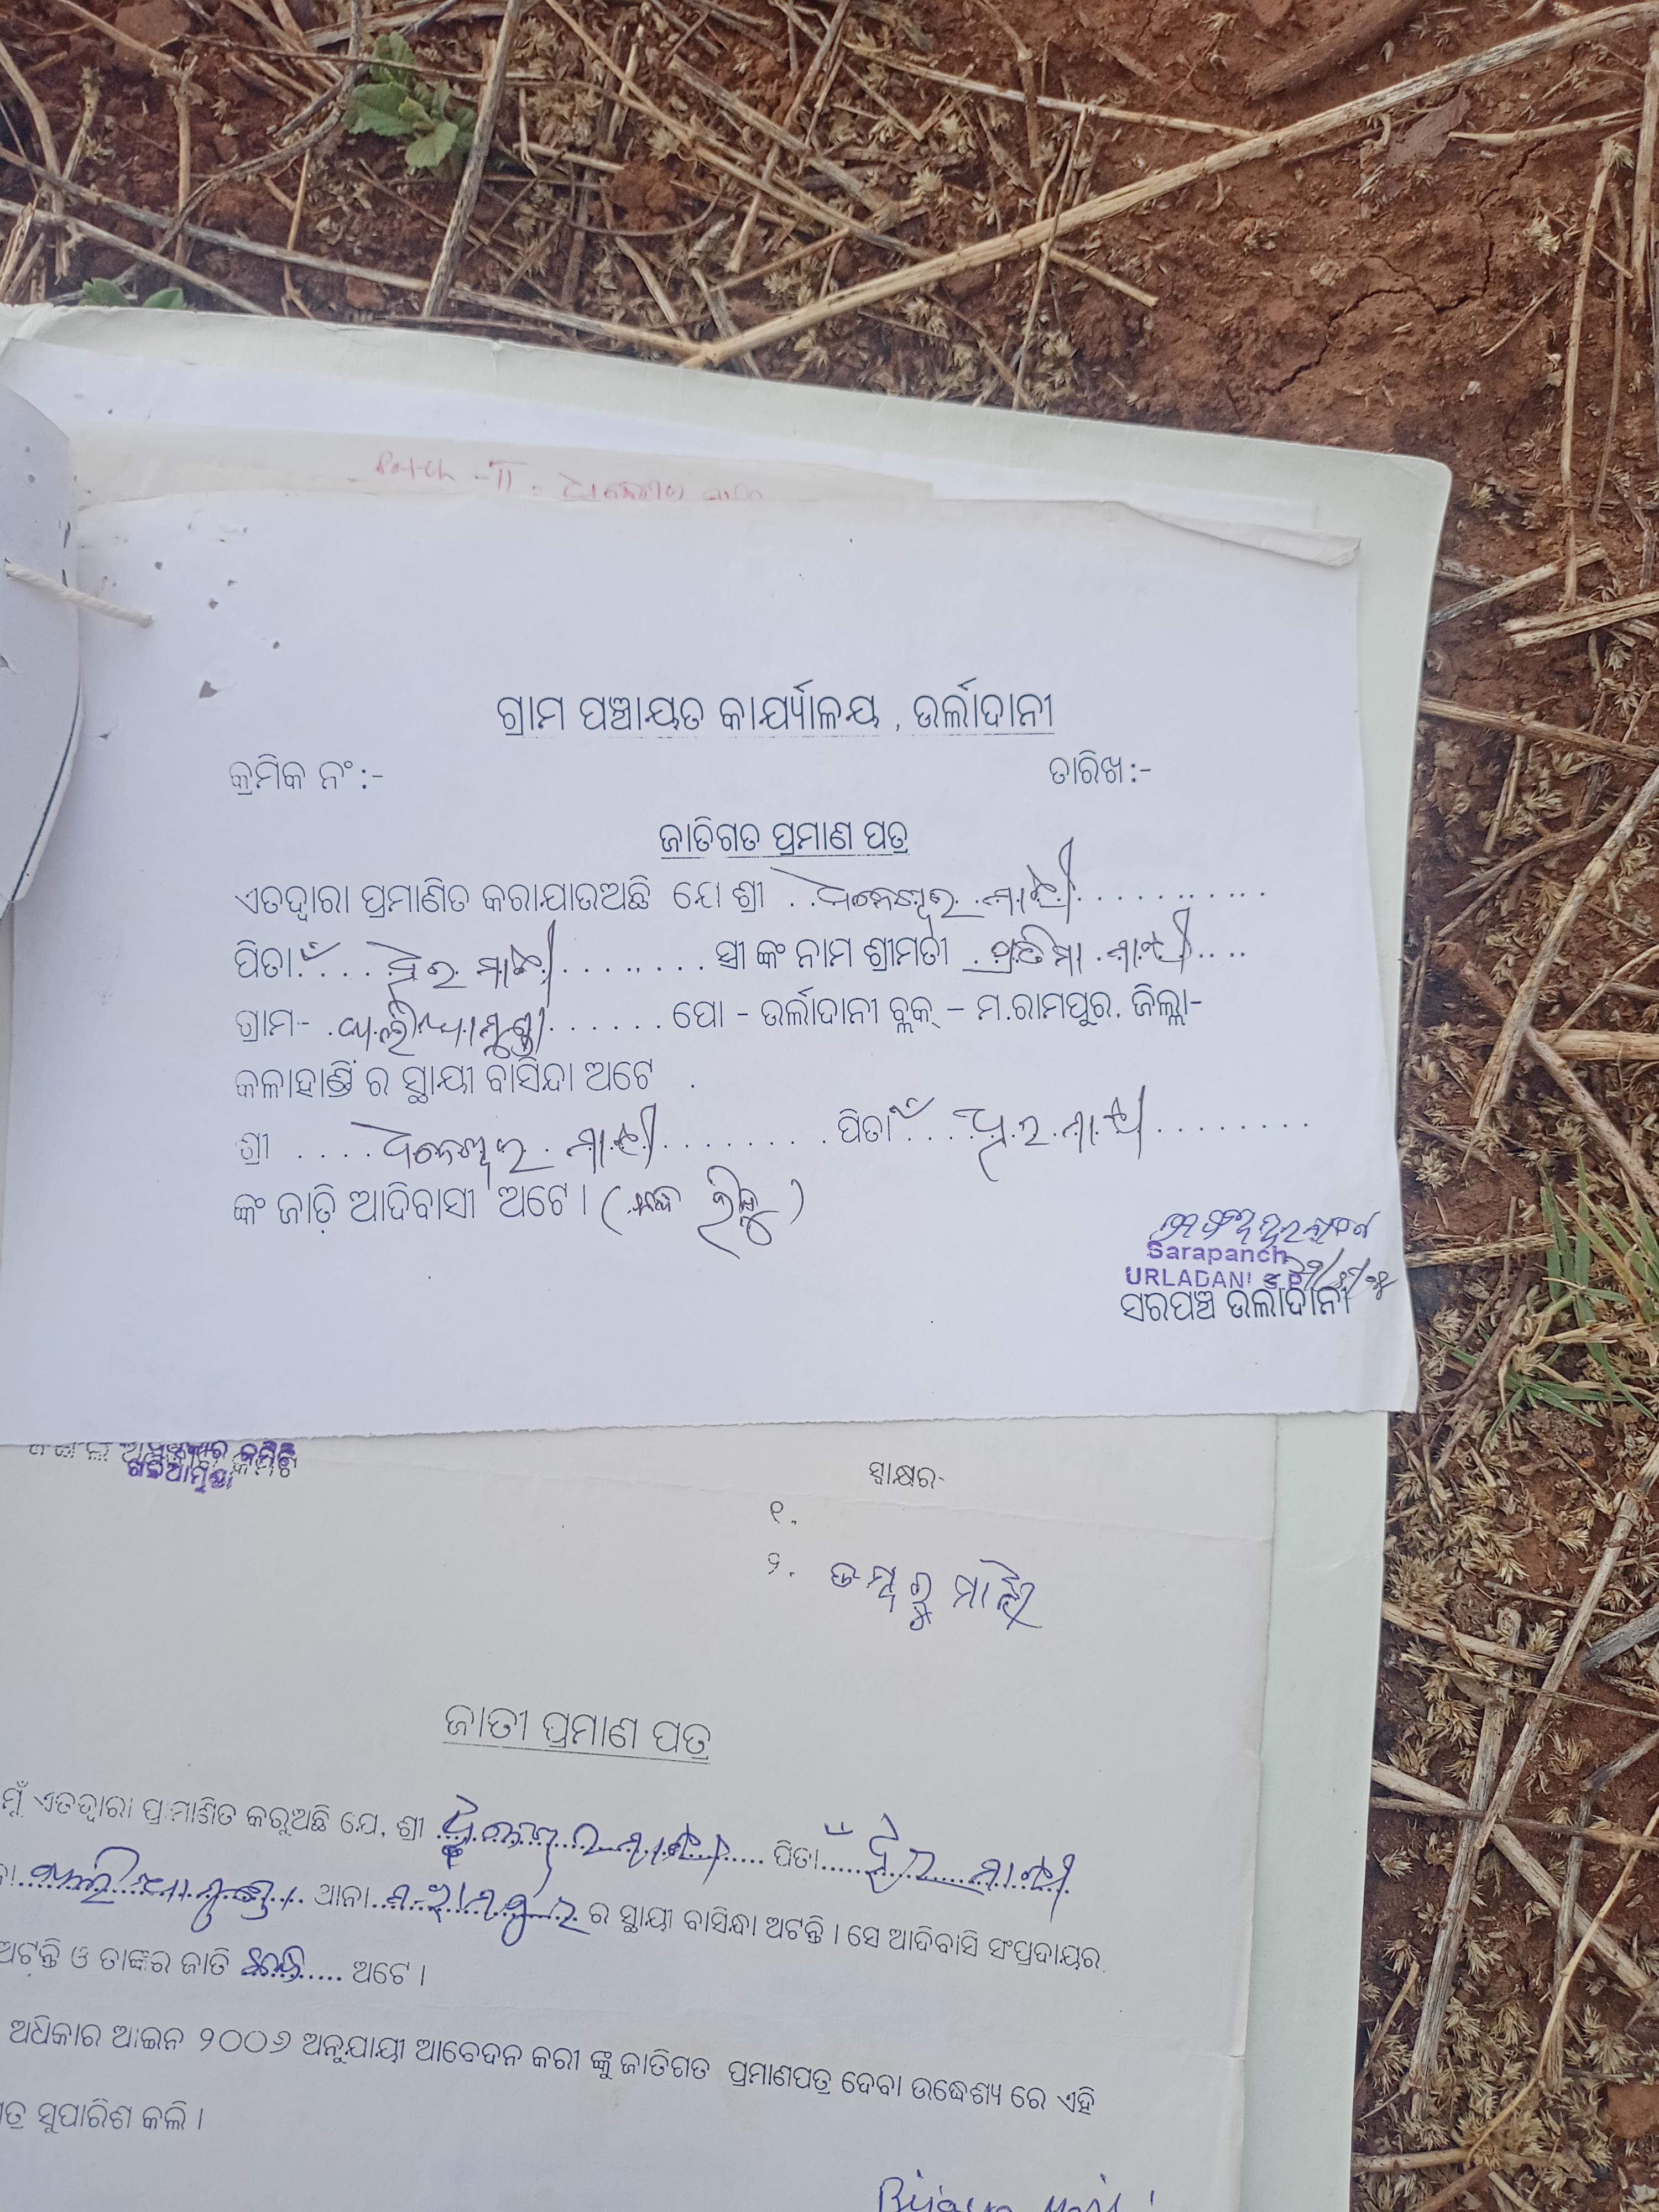 Patch - II . ଧନେଶ୍ୱର ମାଝୀ
ଗ୍ରାମ ପଞ୍ଚାୟତ କାର୍ଯ୍ୟାଳୟ , ଉର୍ଲାଦାନୀ
କ୍ରମିକ ନଂ :- ତାରିଖ :-
ଜାତିଗତ ପ୍ରମାଣ ପତ୍ର
ଏତଦ୍ୱାରା ପ୍ରମାଣିତ କରାଯାଉଅଛି ଯେ ଶ୍ରୀ . . ଧନେଶ୍ୱର ମାଝୀ . . . . . . . . . .
ପିତା . . . ହିର ମାଝୀ . . . . . . . . ସ୍ତ୍ରୀ ଙ୍କ ନାମ ଶ୍ରୀମତୀ . ପ୍ରତିମା ମାଝୀ . . . .
ଗ୍ରାମ- . . . . . . . ପୋ - ଉର୍ଲାଦାନୀ ବ୍ଲକ୍ – ମ.ରାମପୁର. ଜିଲ୍ଲା-
କଳାହାଣ୍ଡି ର ସ୍ଥାୟୀ ବାସିନ୍ଦା ଅଟେ .
ଶ୍ରୀ . . . . ଧନେଶ୍ୱର ମାଝୀ . . . . . . . . . ପିତା . . . . ହିର ମାଝୀ . . . . . . . . .
ଙ୍କ ଜାତି ଆଦିବାସୀ ଅଟେ ।
Sarapanch
URLADANI G.P
ସରପଞ୍ଚ ଉର୍ଲାଦାନୀ
ସ୍ୱାକ୍ଷର-
୧.
୨. ଡମ୍ବରୁ ମାଝି
ଜାତୀ ପ୍ରମାଣ ପତ୍ର
ମୁଁ ଏତଦ୍ୱାରା ପ୍ରମାଣିତ କରୁଅଛି ଯେ, ଶ୍ରୀ ଧନେଶ୍ୱର ମାଝୀ ..... ପିତା ..... ହିର ମାଝୀ
ଥାନା ମ.ରାମପୁର ର ସ୍ଥାୟୀ ବାସିନ୍ଧା ଅଟନ୍ତି । ସେ ଆଦିବାସି ସଂପ୍ରଦାୟର
ଅଟନ୍ତି ଓ ତାଙ୍କର ଜାତି ..... ଅଟେ ।
ଅଧିକାର ଆଇନ ୨୦୦୬ ଅନୁଯାୟୀ ଆବେଦନ କରୀ ଙ୍କୁ ଜାତିଗତ ପ୍ରମାଣପତ୍ର ଦେବା ଉଦ୍ଧେଶ୍ୟ ରେ ଏହି
ସୁପାରିଶ କଲି ।